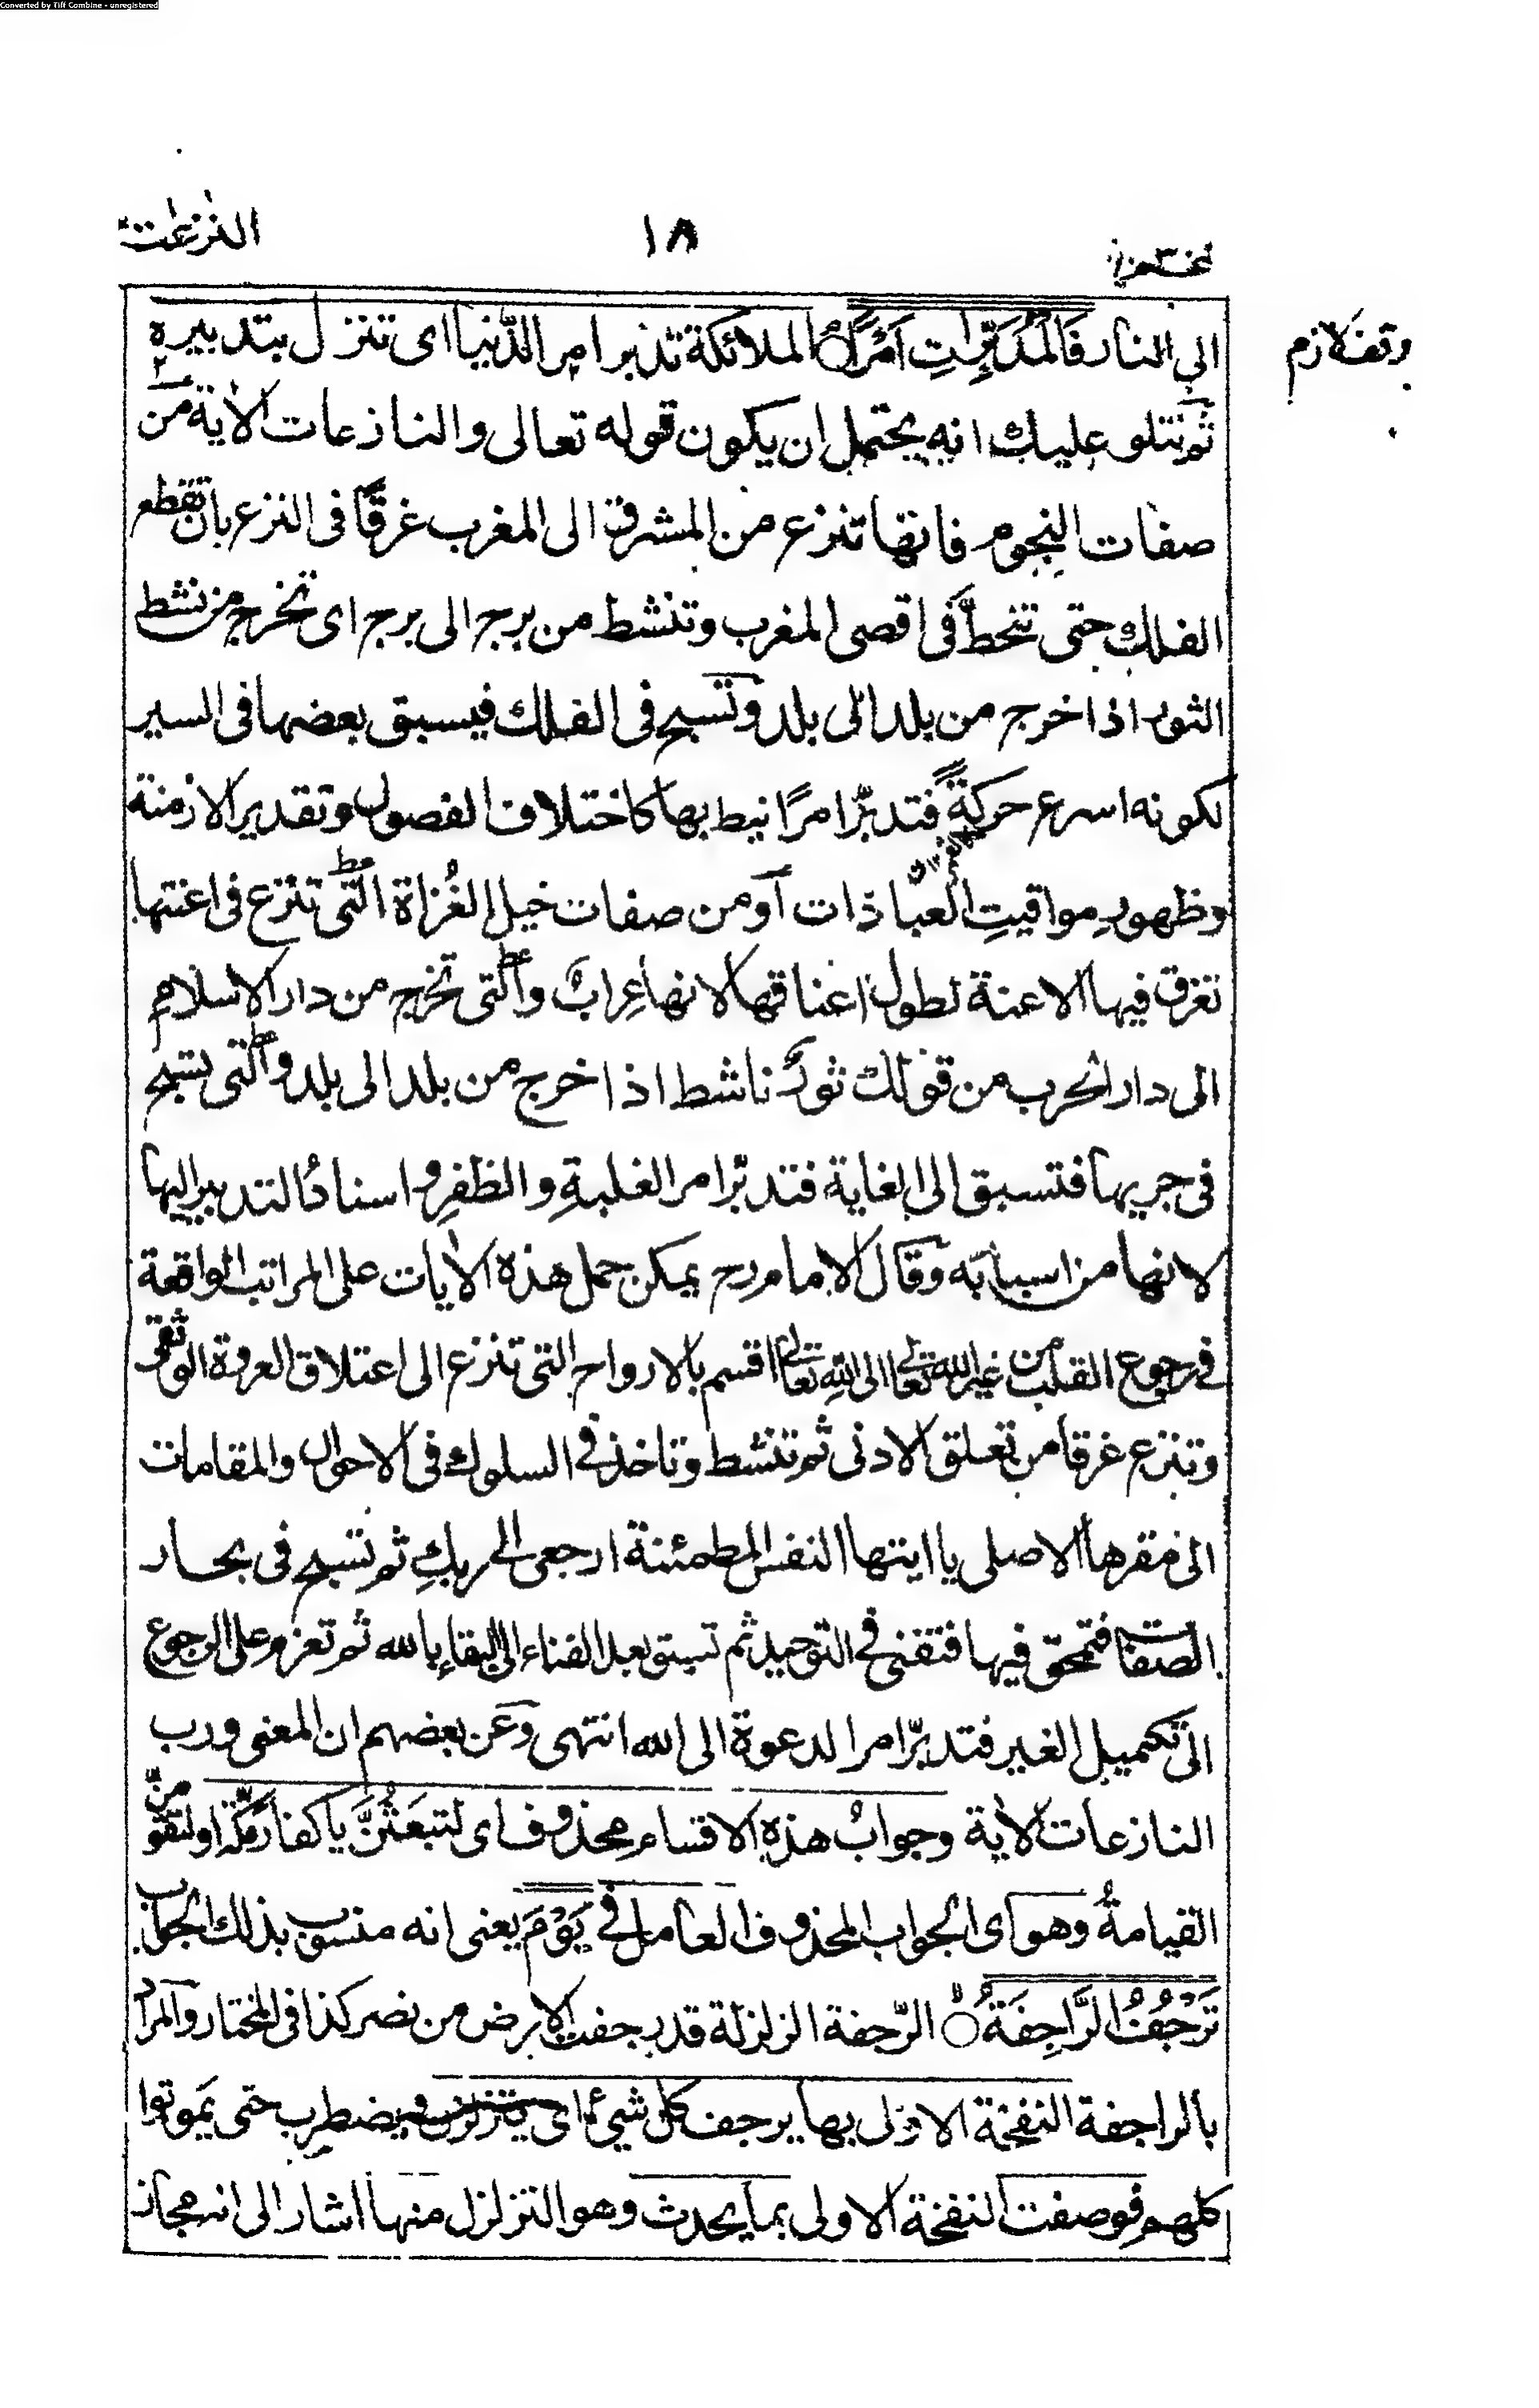 Converted by Tiff Combine - unregistered
النٰزعٰت
١٨
وقف لازم
الى النار فَالْمُدَبِّرٰتِ اَمْرًا الملائكة تدبر امر الدّنيا اى تنزل بتدبيره
ثم نتلو عليك انه يحتمل ان يكون قوله تعالى والنازعات الأية من
صفات النجوم فانها تنزع من المشرق الى المغرب غرقًا فى النزع بان تقطع
الفلك حتى تنحطّ فى اقصى المغرب وتنشط من برج الى برج اى تخرج من نشط
الثور اذا خرج من بلد الى بلد وتسبح فى الفلك فيسبق بعضها فى السير
لكونه اسرع حركةً فتدبّر امرًا نيط بها كاختلاف الفصول وتقدير الازمنة
وظهورِ مواقيتِ العبادات اَو من صفات خيل الغُزاة التى تنزع فى اعنتها
تغرق فيها الاعنة لطول اعناقها لانها عِرابٌ والتى تخرج من دار الاسلام
الى دار الحرب من قولك ثورٌ ناشط اذا خرج من بلد الى بلد والتى تسبح
فى جريها فتسبق الى الغاية فتدبّر امر الغلبةِ والظفرِ واسنادُ التدبير اليها
لانها من اسبابه وقال الامام رح يمكن حمل هذه الأيات على المراتب الواقعة
فى رجوع القلب من غير الله تعالى الى الله تعالى اقسم بالارواح التى تنزع الى اعتلاق العروة الوثقى
وتنزع غرقا من تعلق الادنى ثم تنشط وتاخذ فى السلوك فى الاحوال والمقامات
الى مقرها الاصلى يا ايتها النفس المطمئنة ارجعى الى ربكِ ثم تسبح فى بحار
الصفات فتمحق فيها فتفنى فى التوحيد ثم تسبق بعد الفناء الى البقاءِ بالله ثم تعزم على الرجوع
الى تكميل الغير فتدبّر امر الدعوة الى الله انتهى وعن بعضهم ان المعنى ورب
النازعات الأية وجوابُ هذه الاقسام محذوف اى لتبعَثُنَّ يا كفار مكّة او لتقومنّ
القيامةُ وهو اى الجواب المحذوف العامل فى يَوْمَ يعنى انه منسوب بذلك الجواب
تَرْجُفُ الرَّاجِفَةُ الرّجفة الزلزلة قد رجفت الارض من نصر كذا فى المختار والمراد
بالراجفة النفخة الاولى بها يرجف كل شئ اى يتزلزل ويضطرب حتى يَموتوا
كلهم فوصفت النفخة الاولى بما يحدث وهو التزلزل منها اشار الى انه مجاز